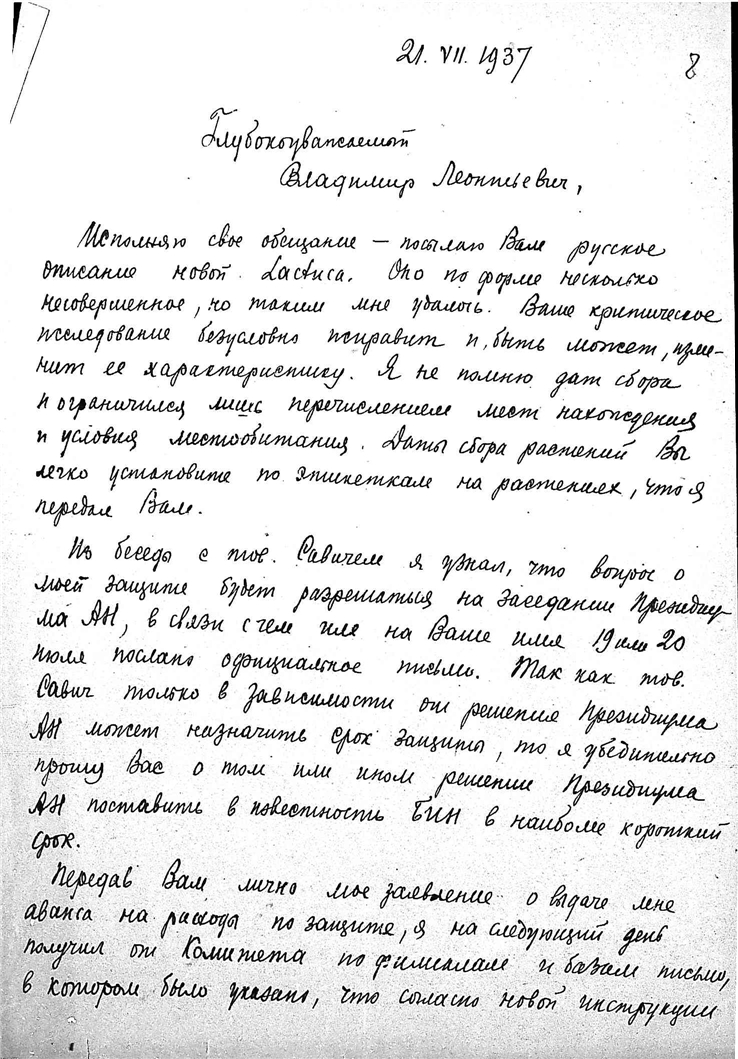 21. VII. 1937
8
Глубокоуважаемый
Владимир Леонтьевич,
Исполняю свое обещание – посылаю Вам русское
описание новой Lactuca. Оно по форме несколько
несовершенное, но таким мне удалось. Ваше критическое
исследование безусловно исправит и, быть может, изме-
нит ее характеристику. Я не помню дат сбора
и ограничился лишь перечислением мест нахождения
и условия местообитания. Даты сбора растений Вы
легко установите по этикеткам на растениях, что я
передал Вам.
Из беседы с тов. Савичем я узнал, что вопрос о
моей защите будет разрешаться на заседании Президиу
ма АН, в связи с чем им на Ваше имя 19 или 20
июля послано официальное письмо. Так как тов.
Савич только в зависимости от решения Президиума
АН может назначить срок защиты, то я убедительно
прошу Вас о том или ином решении Президиума
АН поставить в известность БИН в наиболе короткий
срок.
Передав Вам лично мое заявление о выдаче мне
аванса на расходы по защите, я на следующий день
получил от Комитета по филиалам и базам письмо,
в котором было указано, что согласно новой инструкции